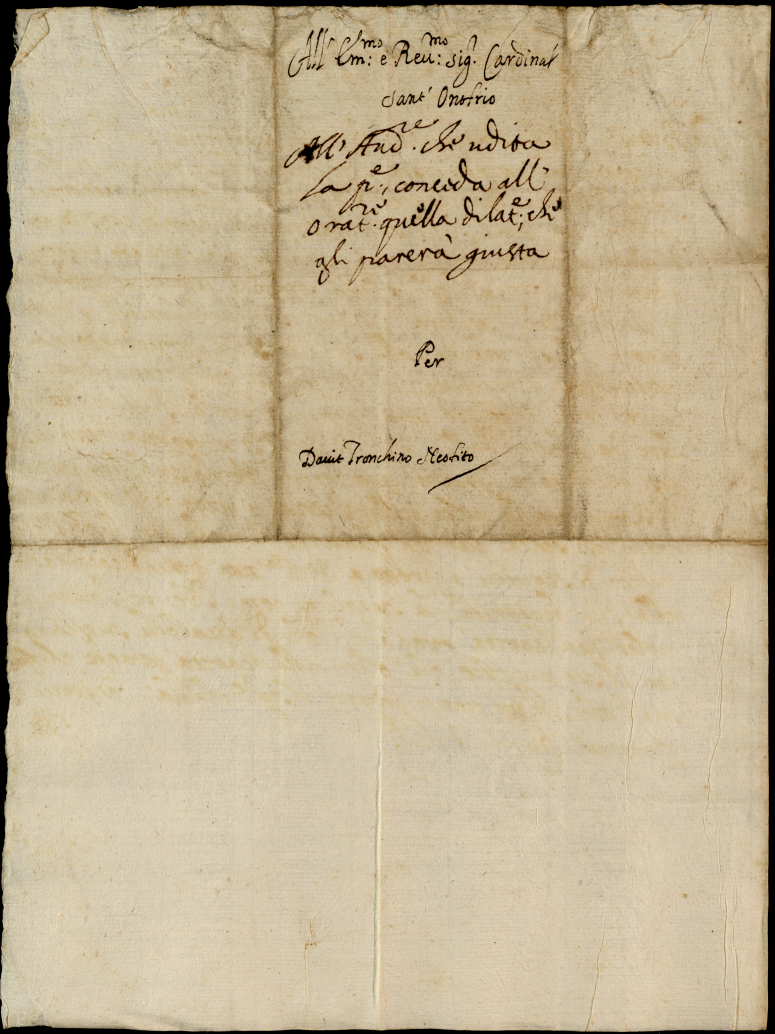 All' Em:mo e Reu:mo sig.r Cardinal
Sant' Onofrio
All' Aud.re che udita
la p.e, conceda all'
orat.re quella dilat.e, che
gli parerà giusta
Per
Dauit Tronchino Neofito